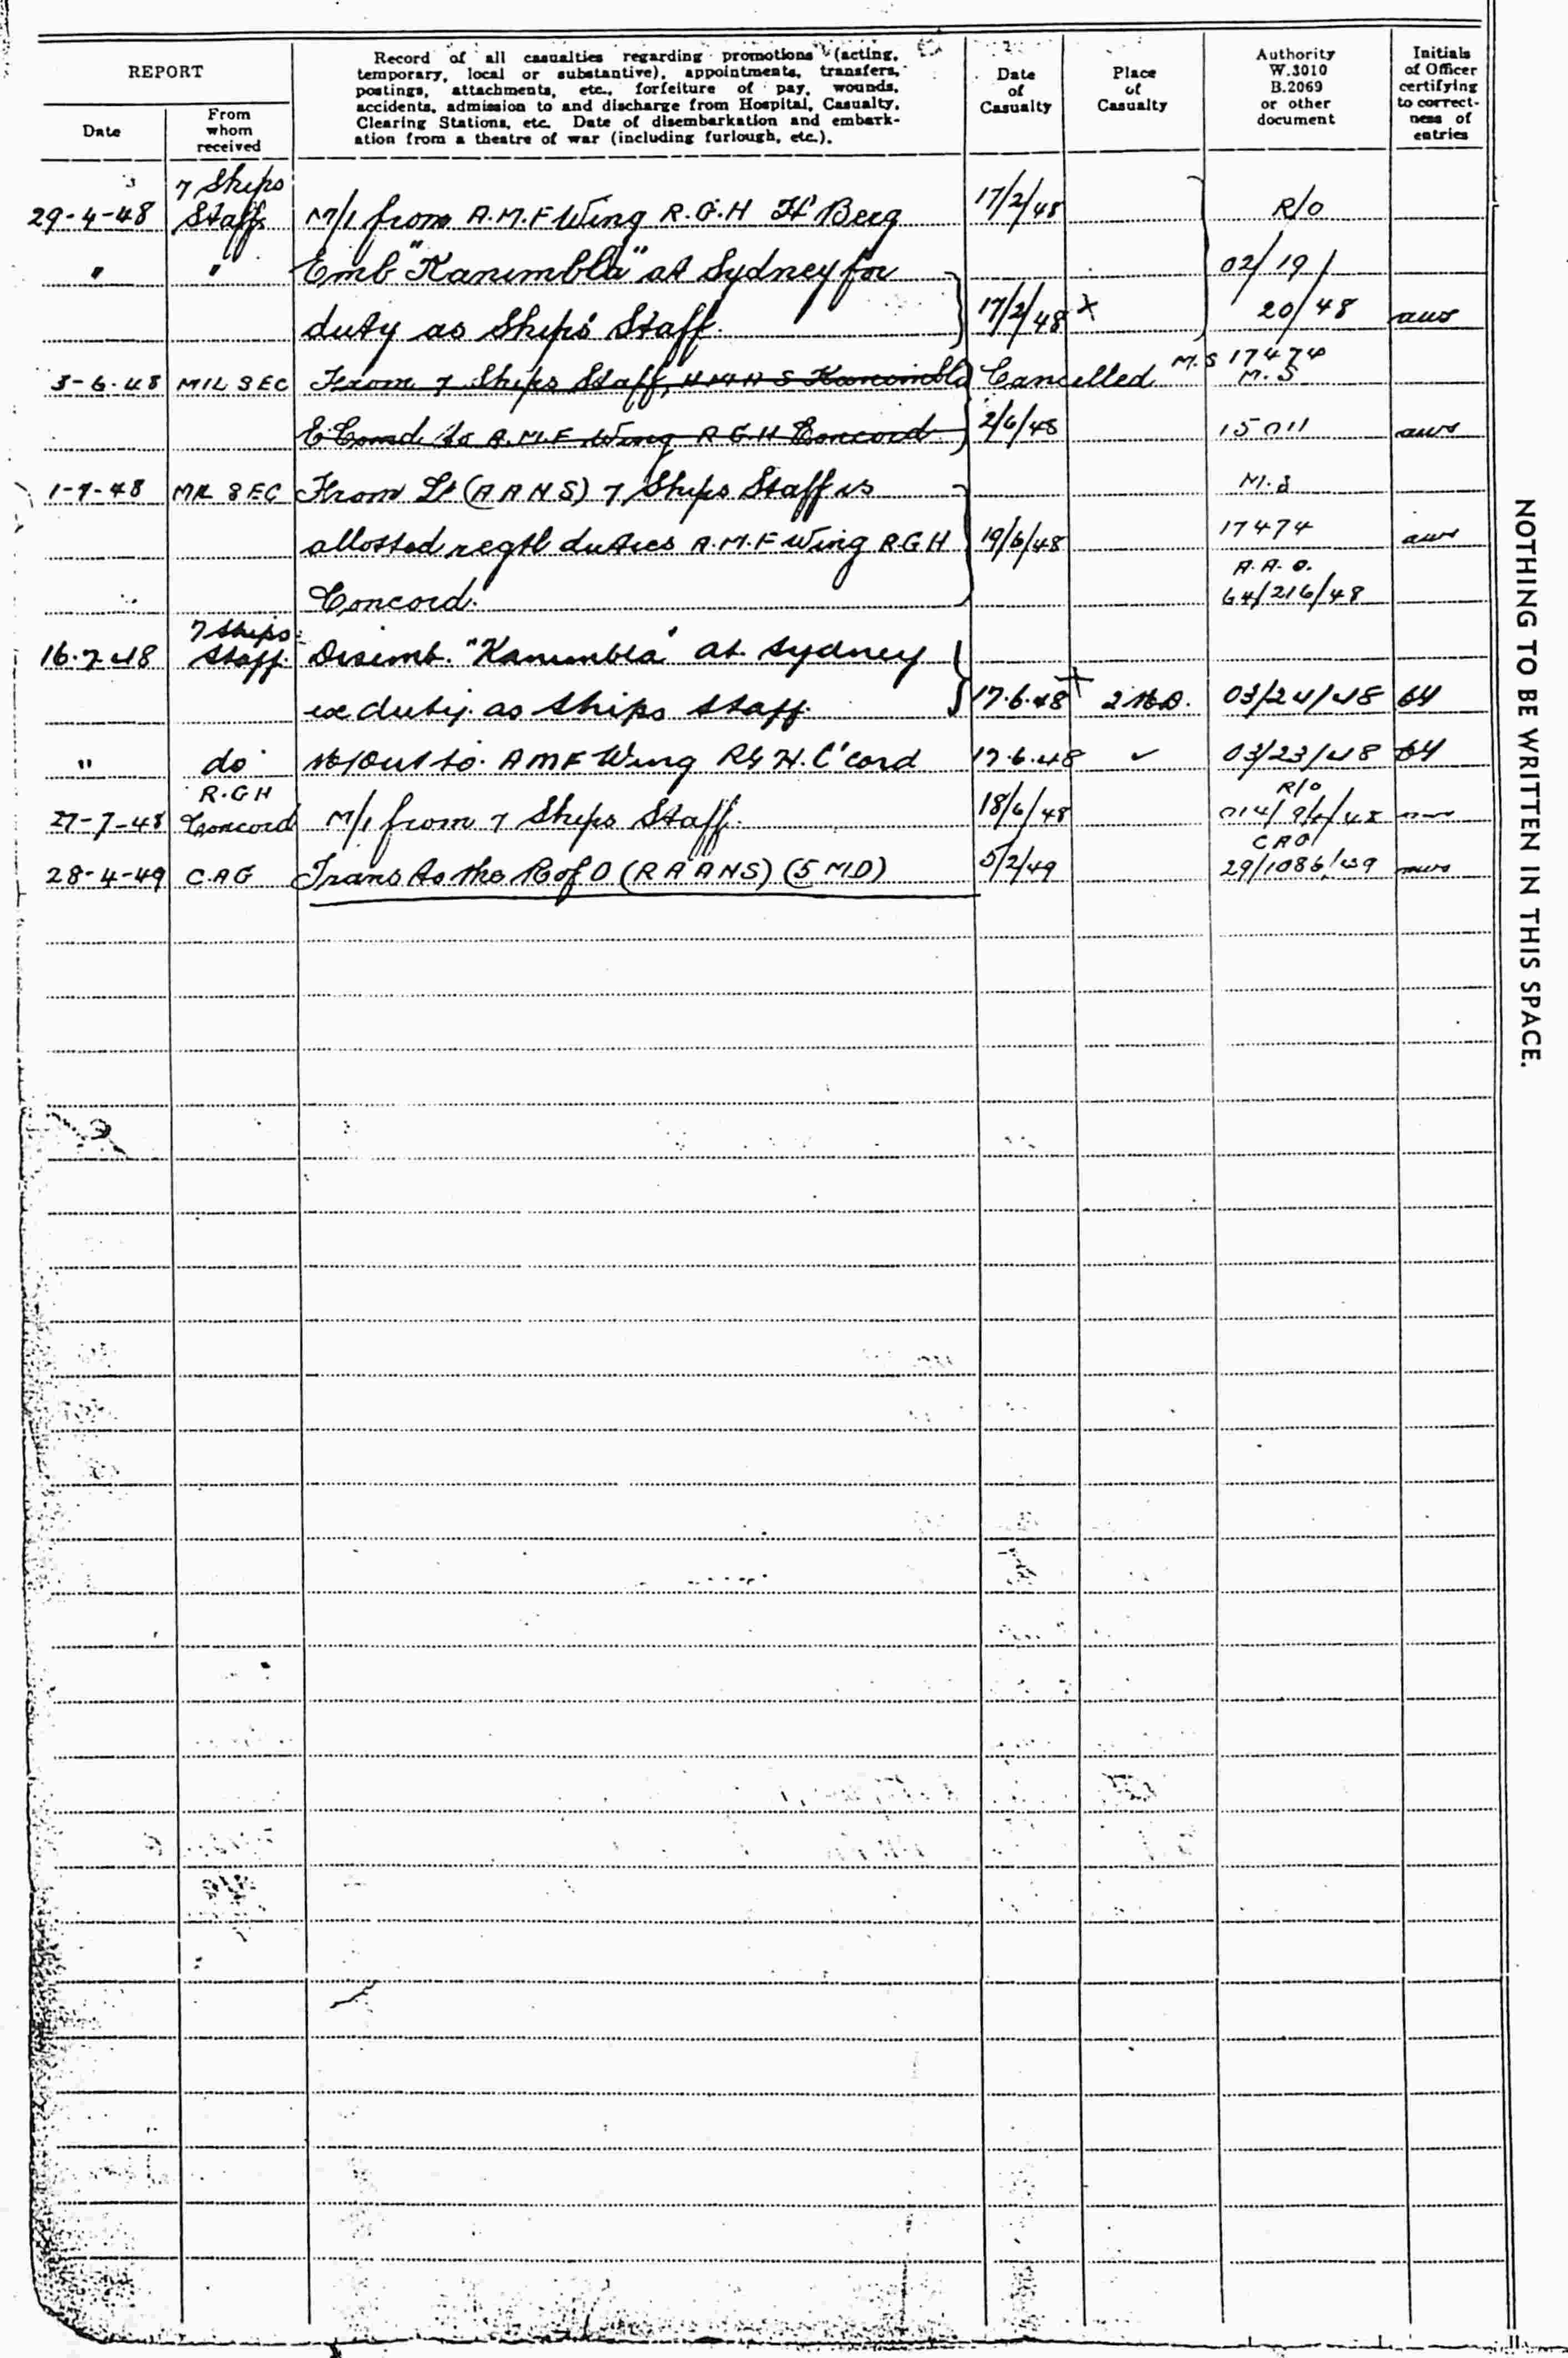 REPORT
Date
From whom received
Record of all casualties regarding promotions (acting,
temporary, local or substantive), appointments, transfers,
postings, attachments, etc., forfeiture of pay, wounds,
accidents, admission to and discharge from Hospital, Casualty,
Clearing Stations, etc. Date of disembarkation and embark-
ation from a theatre of war (including furlough, etc.).
Date of Casualty
Place of Casualty
Authority W.3010 B.2069 or other document
Initials of Officer certifying to correct-ness of entries
7 Ships
29-4-48 Staff M/I from A.M.F Wing R.G.H H'Berg 17/2/48 R/O
" " Emb "Kanimbla" at Sydney for 02/19/
duty as Ships Staff. 17/2/48 X 20/48 aws
M.S 17474
3-6-48 MIL SEC From 7 Ships Staff, HMAS Kanimbla Cancelled M.S
E Comd to A.M.F Wing R.G.H Concord 2/6/48 15011 aws
1-7-48 MIL SEC From Lt (AANS) 7 Ships Staff is M.S
allotted regtl duties A.M.F Wing R.G.H 19/6/48 17474 aws
A.A.O.
Concord. 64/216/48
7 Ships
16.7.48 Staff. Disemb. "Kanimbla" at Sydney
ex duty as Ships Staff. 17.6.48 X 03/24/48
" do M/Out to. AMF Wing RGH. C'cord 17.6.48 ✓ 03/23/48
R.G.H R/O
27-7-48 Concord M/I from 7 Ships Staff. 18/6/48
CAO
28-4-49 C.A.G Trans to the R of O (RAANS) (5 MD) 5/2/49 29/1086/49
NOTHING TO BE WRITTEN IN THIS SPACE.